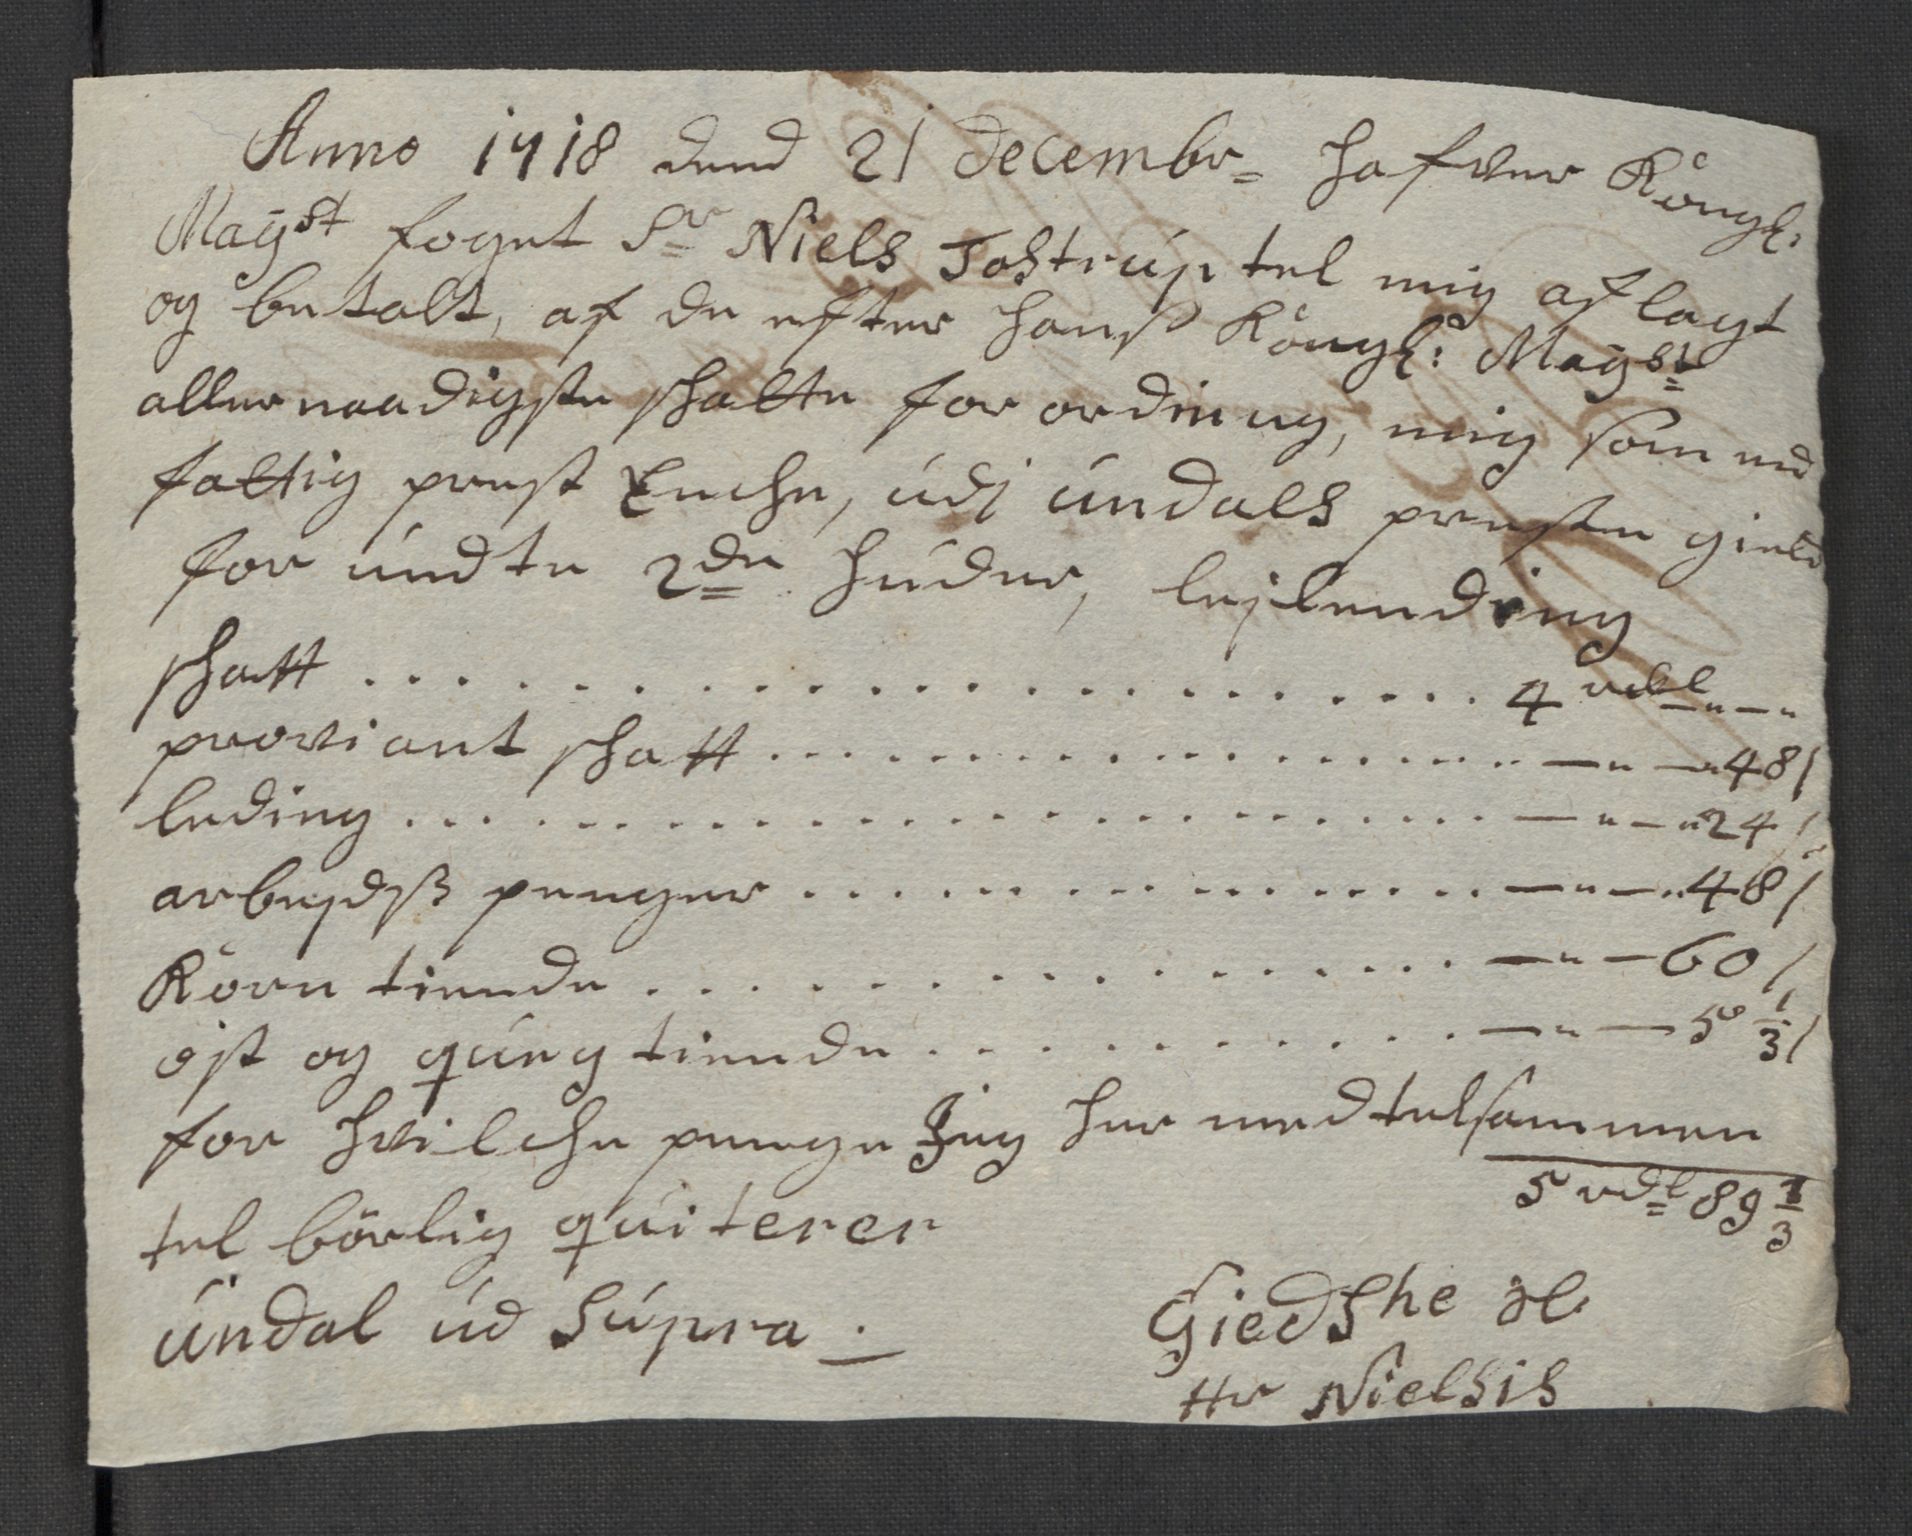 Anno 1718 dend 21 decembr= hafver Kongl:
Mayst foget Sr Niels Tostrup tel mig aflagt
og betalt, af de efter hans Kongl: Mayst
allernaadigste skatte for ordning, mig som ed
fattig prest Enche, udj undals preste gield
for undte 2de huder, lejlending
skatt . . . . . . . . . . 4 rdl - -
proviant skatt . . . . . . . . . . - - 48 s
leding . . . . . . . . . . - - 24 s
arbejdsß penger . . . . . . . . . . - - 48 s
Korn tiende . . . . . . . . . . - - 60 s
ost og queg tiende . . . . . . . . . . - - 5 1/3 s
for hvilche penge Jeg her med telsammen
5 rdl 89 1/3
tel börlig quiterer
Undal ud Supra .
Giedshe Sl
Hr Nielsis